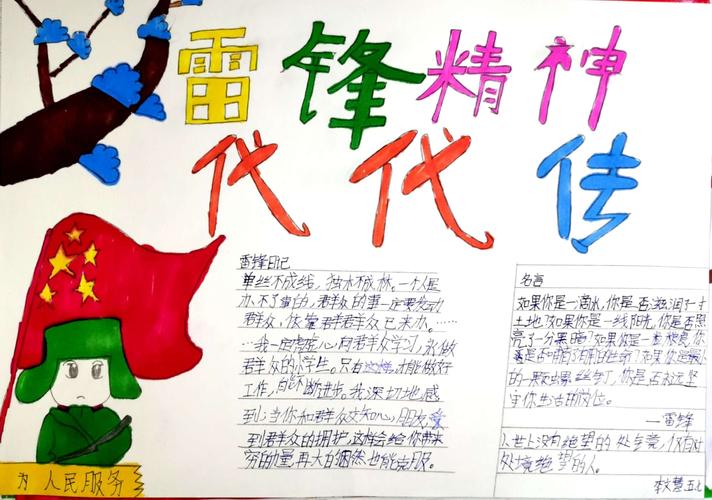 雷锋精神
代代传
雷锋日记
单丝不成线，独木不成林。一个人是
办不了的，群众的事一定要发动
群众，依靠群群众己来办。……
……我一定虚心向群众学习，永做
群众的小学生。只有这样，才能做好
工作，自己不断进步。我深切地感
到：当你和群众交知心朋友，爱
到群众的拥护，这样会给你带来
穷的力量，再大的困然也能克服。
名言
如果你是一滴水，你是否滋润了一寸
土地？如果你是一线阳光，你是否照
亮了一分黑暗？如果你是一粮食，你
是否有生命？如果你是最小
的一颗螺丝钉，你是否永远坚
守你生活的岗位。
——雷锋
人世上没有绝望的处竟，仅有对
处境绝望的人。
为人民服务